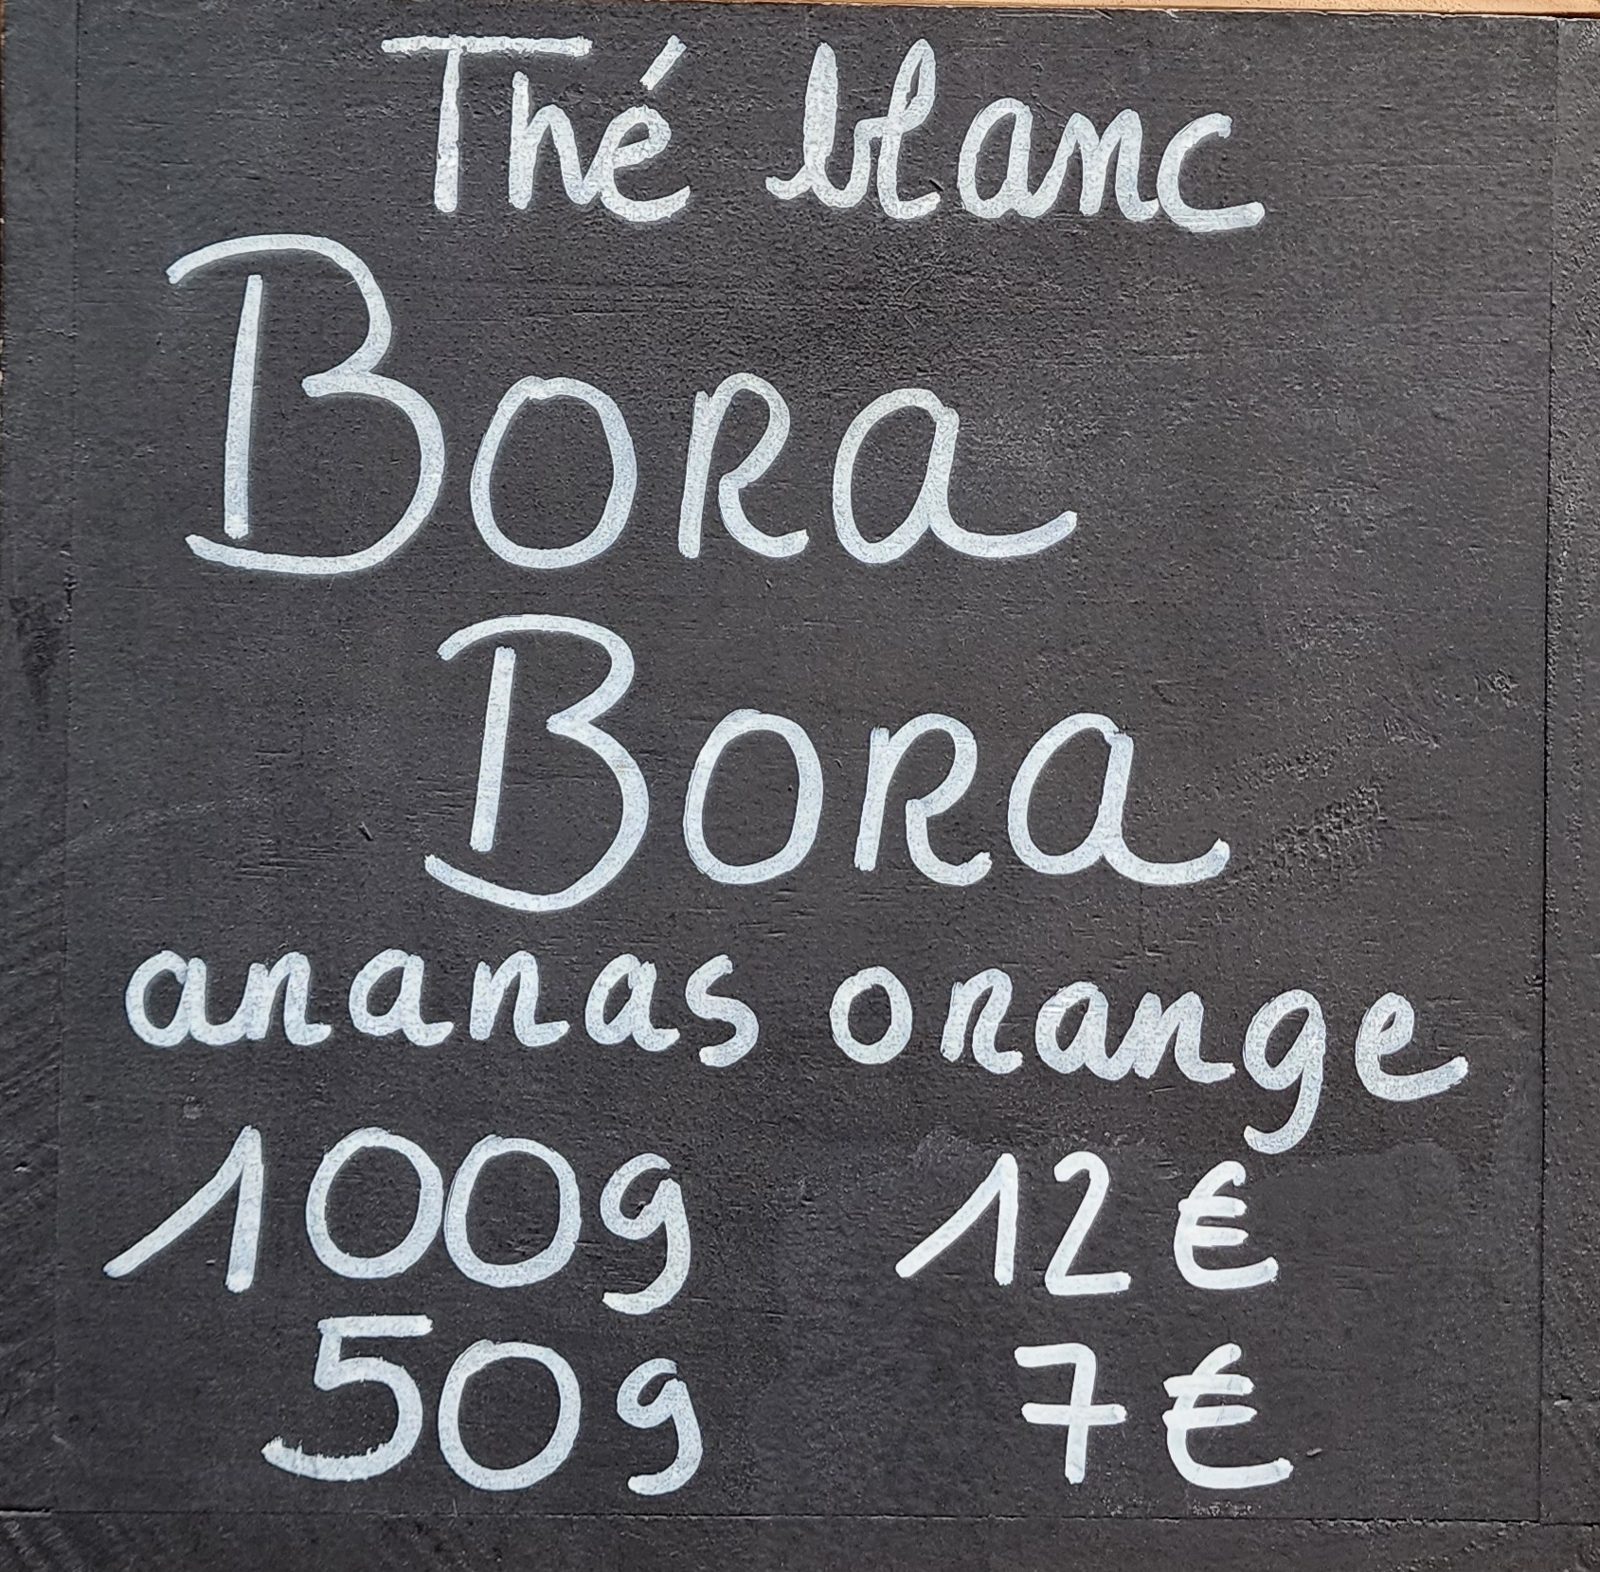 Thé blanc
Bora
Bora
ananas orange
100g 12€
50g 7€